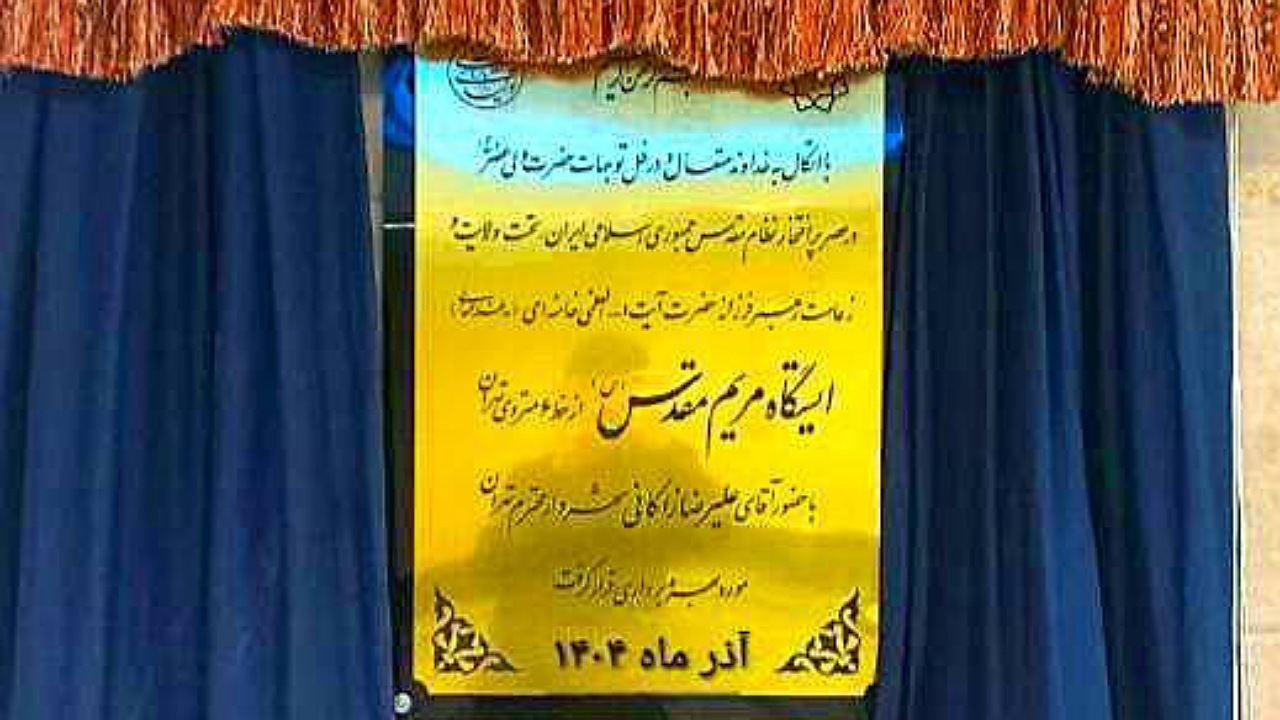 با اتکال به خداوند متعال و در ظل توجهات حضرت ولی عصر
در عصر پر افتخار نظام مقدس جمهوری اسلامی ایران تحت ولایت و
زعامت رهبر فرزانه حضرت آیت ا... العظمی خامنه ای
ایستگاه مریم مقدس (س) از خط ۶ متروی تهران
با حضور آقای علیرضا زاکانی شهردار محترم تهران
مورد بهره برداری قرار گرفت
آذر ماه ۱۴۰۴